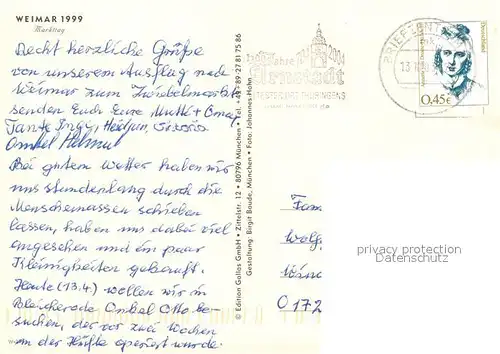 WEIMAR 1999
Markttag
Recht herzliche Grüße
von unserem Ausflug nach
Weimar zum Zwiebelmarkt
senden Euch Eure Mutti + Oma,
Tante Inge, Heidrun,
Onkel Helmut
Bei gutem Wetter haben wir
uns stundenlang durch die
Menschenmassen schieben
lassen, haben uns dabei viel
angesehen und ein paar
Kleinigkeiten gekauft.
Heute (13.4.) wollen wir in
Bleicherode Onkel Otto be-
suchen, der vor zwei Wochen
an der Hüfte operiert wurde.
© Edition Gallas GmbH • Zittelstr. 12 • 80796 München • Tel. +49-89-27 81 75 86
Gestaltung: Birgit Baude, München • Foto: Johannes Hahn
Jahre
Arnstadt
THÜRINGENS
BRIEFZENTRUM
13.10
Deutschland
0,45€
Fam.
Wolfg.
0172
privacy protection
Datenschutz